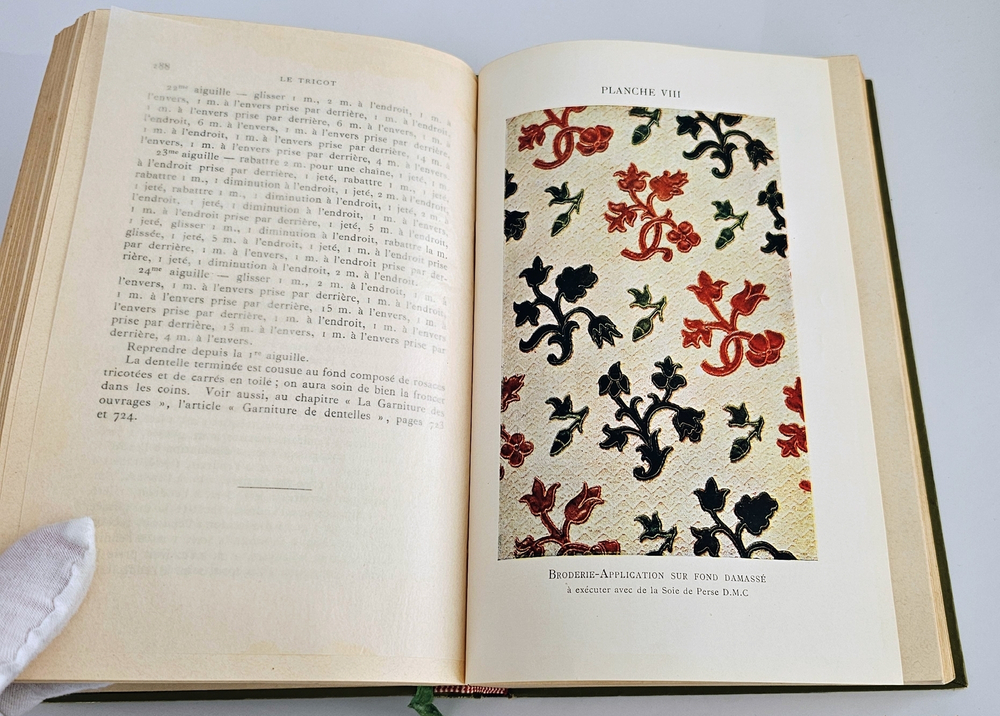 188
LE TRICOT
22me aiguille — glisser 1 m., 2 m. à l'endroit, 1 m. à
l'envers, 1 m. à l'envers prise par derrière, 1 m. à l'endroit,
1 m. à l'envers prise par derrière, 6 m. à l'envers, 1 m. à
l'endroit, 6 m. à l'envers, 1 m. à l'envers prise par derrière,
1 m. à l'endroit, 1 m. à l'envers prise par derrière, 14 m. à
l'envers, 1 m. à l'envers prise par derrière, 4 m. à l'envers.
23me aiguille — rabattre 2 m. pour une chaîne, 1 jeté, 1 m.
à l'endroit prise par derrière, 1 jeté, rabattre 1 m., 1 jeté,
rabattre 1 m., 1 diminution à l'endroit, 1 jeté, 2 m. à l'endroit,
1 jeté, rabattre 1 m., 1 diminution à l'endroit, 1 jeté, 2 m. à
l'endroit, 1 jeté, 1 diminution à l'endroit, 1 m. à l'envers,
1 m. à l'endroit prise par derrière, 1 jeté, 5 m. à l'endroit,
1 jeté, glisser 1 m., 1 diminution à l'endroit, rabattre la m.
glissée, 1 jeté, 5 m. à l'endroit, 1 jeté, 1 m. à l'endroit prise
par derrière, 1 m. à l'envers, 1 m. à l'endroit prise par der-
rière, 1 jeté, 1 diminution à l'endroit, 2 m. à l'endroit.
24me aiguille — glisser 1 m., 2 m. à l'endroit, 1 m. à
l'envers, 1 m. à l'envers prise par derrière, 1 m. à l'endroit,
1 m. à l'envers prise par derrière, 15 m. à l'envers, 1 m. à
l'envers prise par derrière, 1 m. à l'endroit, 1 m. à l'envers
prise par derrière, 13 m. à l'envers, 1 m. à l'envers prise par
derrière, 4 m. à l'envers.
Reprendre depuis la 1re aiguille.
La dentelle terminée est cousue au fond composé de rosaces
tricotées et de carrés en toile ; on aura soin de bien la froncer
dans les coins. Voir aussi, au chapitre « La Garniture des
ouvrages », l'article « Garniture de dentelles », pages 723
et 724.
PLANCHE VIII
BRODERIE-APPLICATION SUR FOND DAMASSÉ
à exécuter avec de la Soie de Perse D.M.C